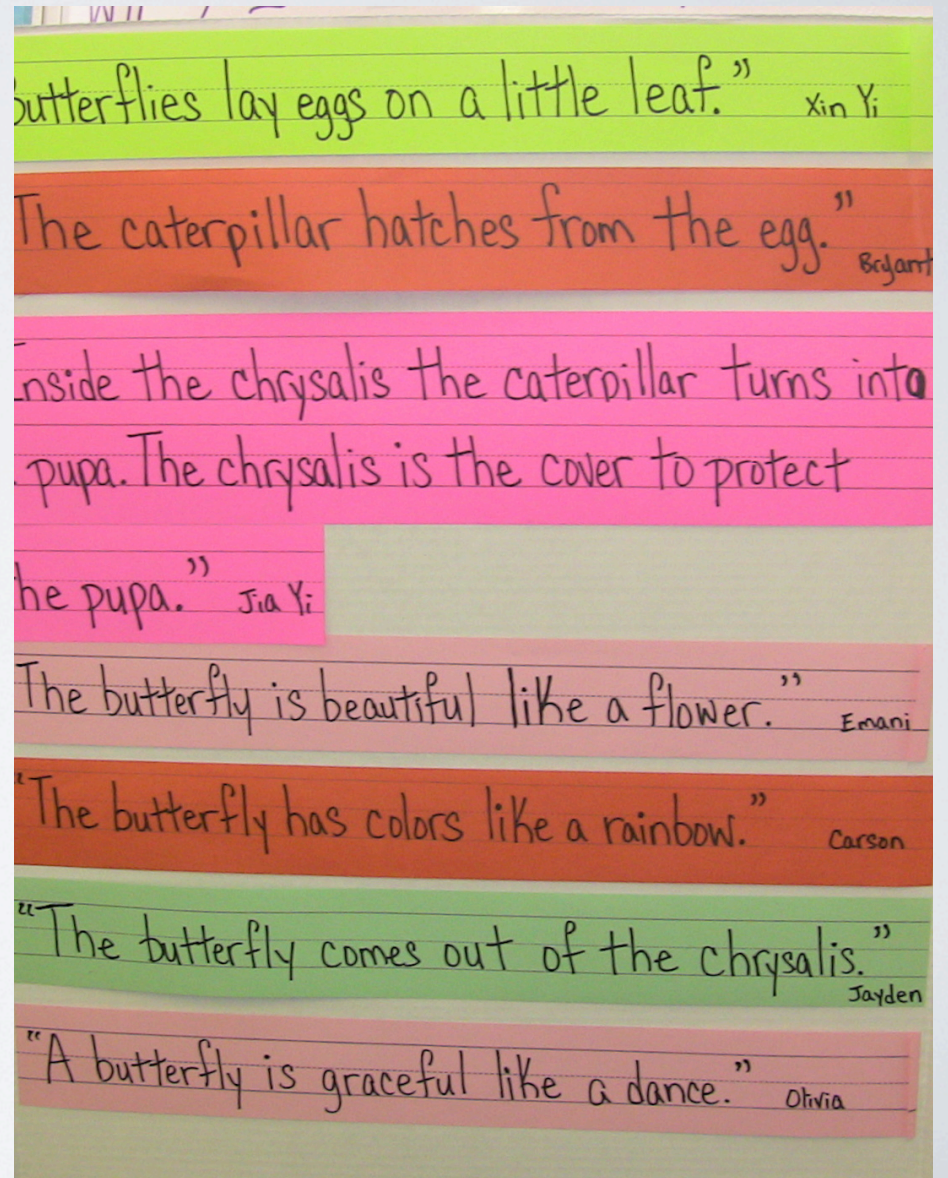 utterflies lay eggs on a little leaf." Xin Yi
The caterpillar hatches from the egg." Bryant
Inside the chrysalis the caterpillar turns into
pupa. The chrysalis is the cover to protect
he pupa." Jia Yi
The butterfly is beautiful like a flower." Emani
"The butterfly has colors like a rainbow." Carson
"The butterfly comes out of the chrysalis."
Jayden
"A butterfly is graceful like a dance." Olivia